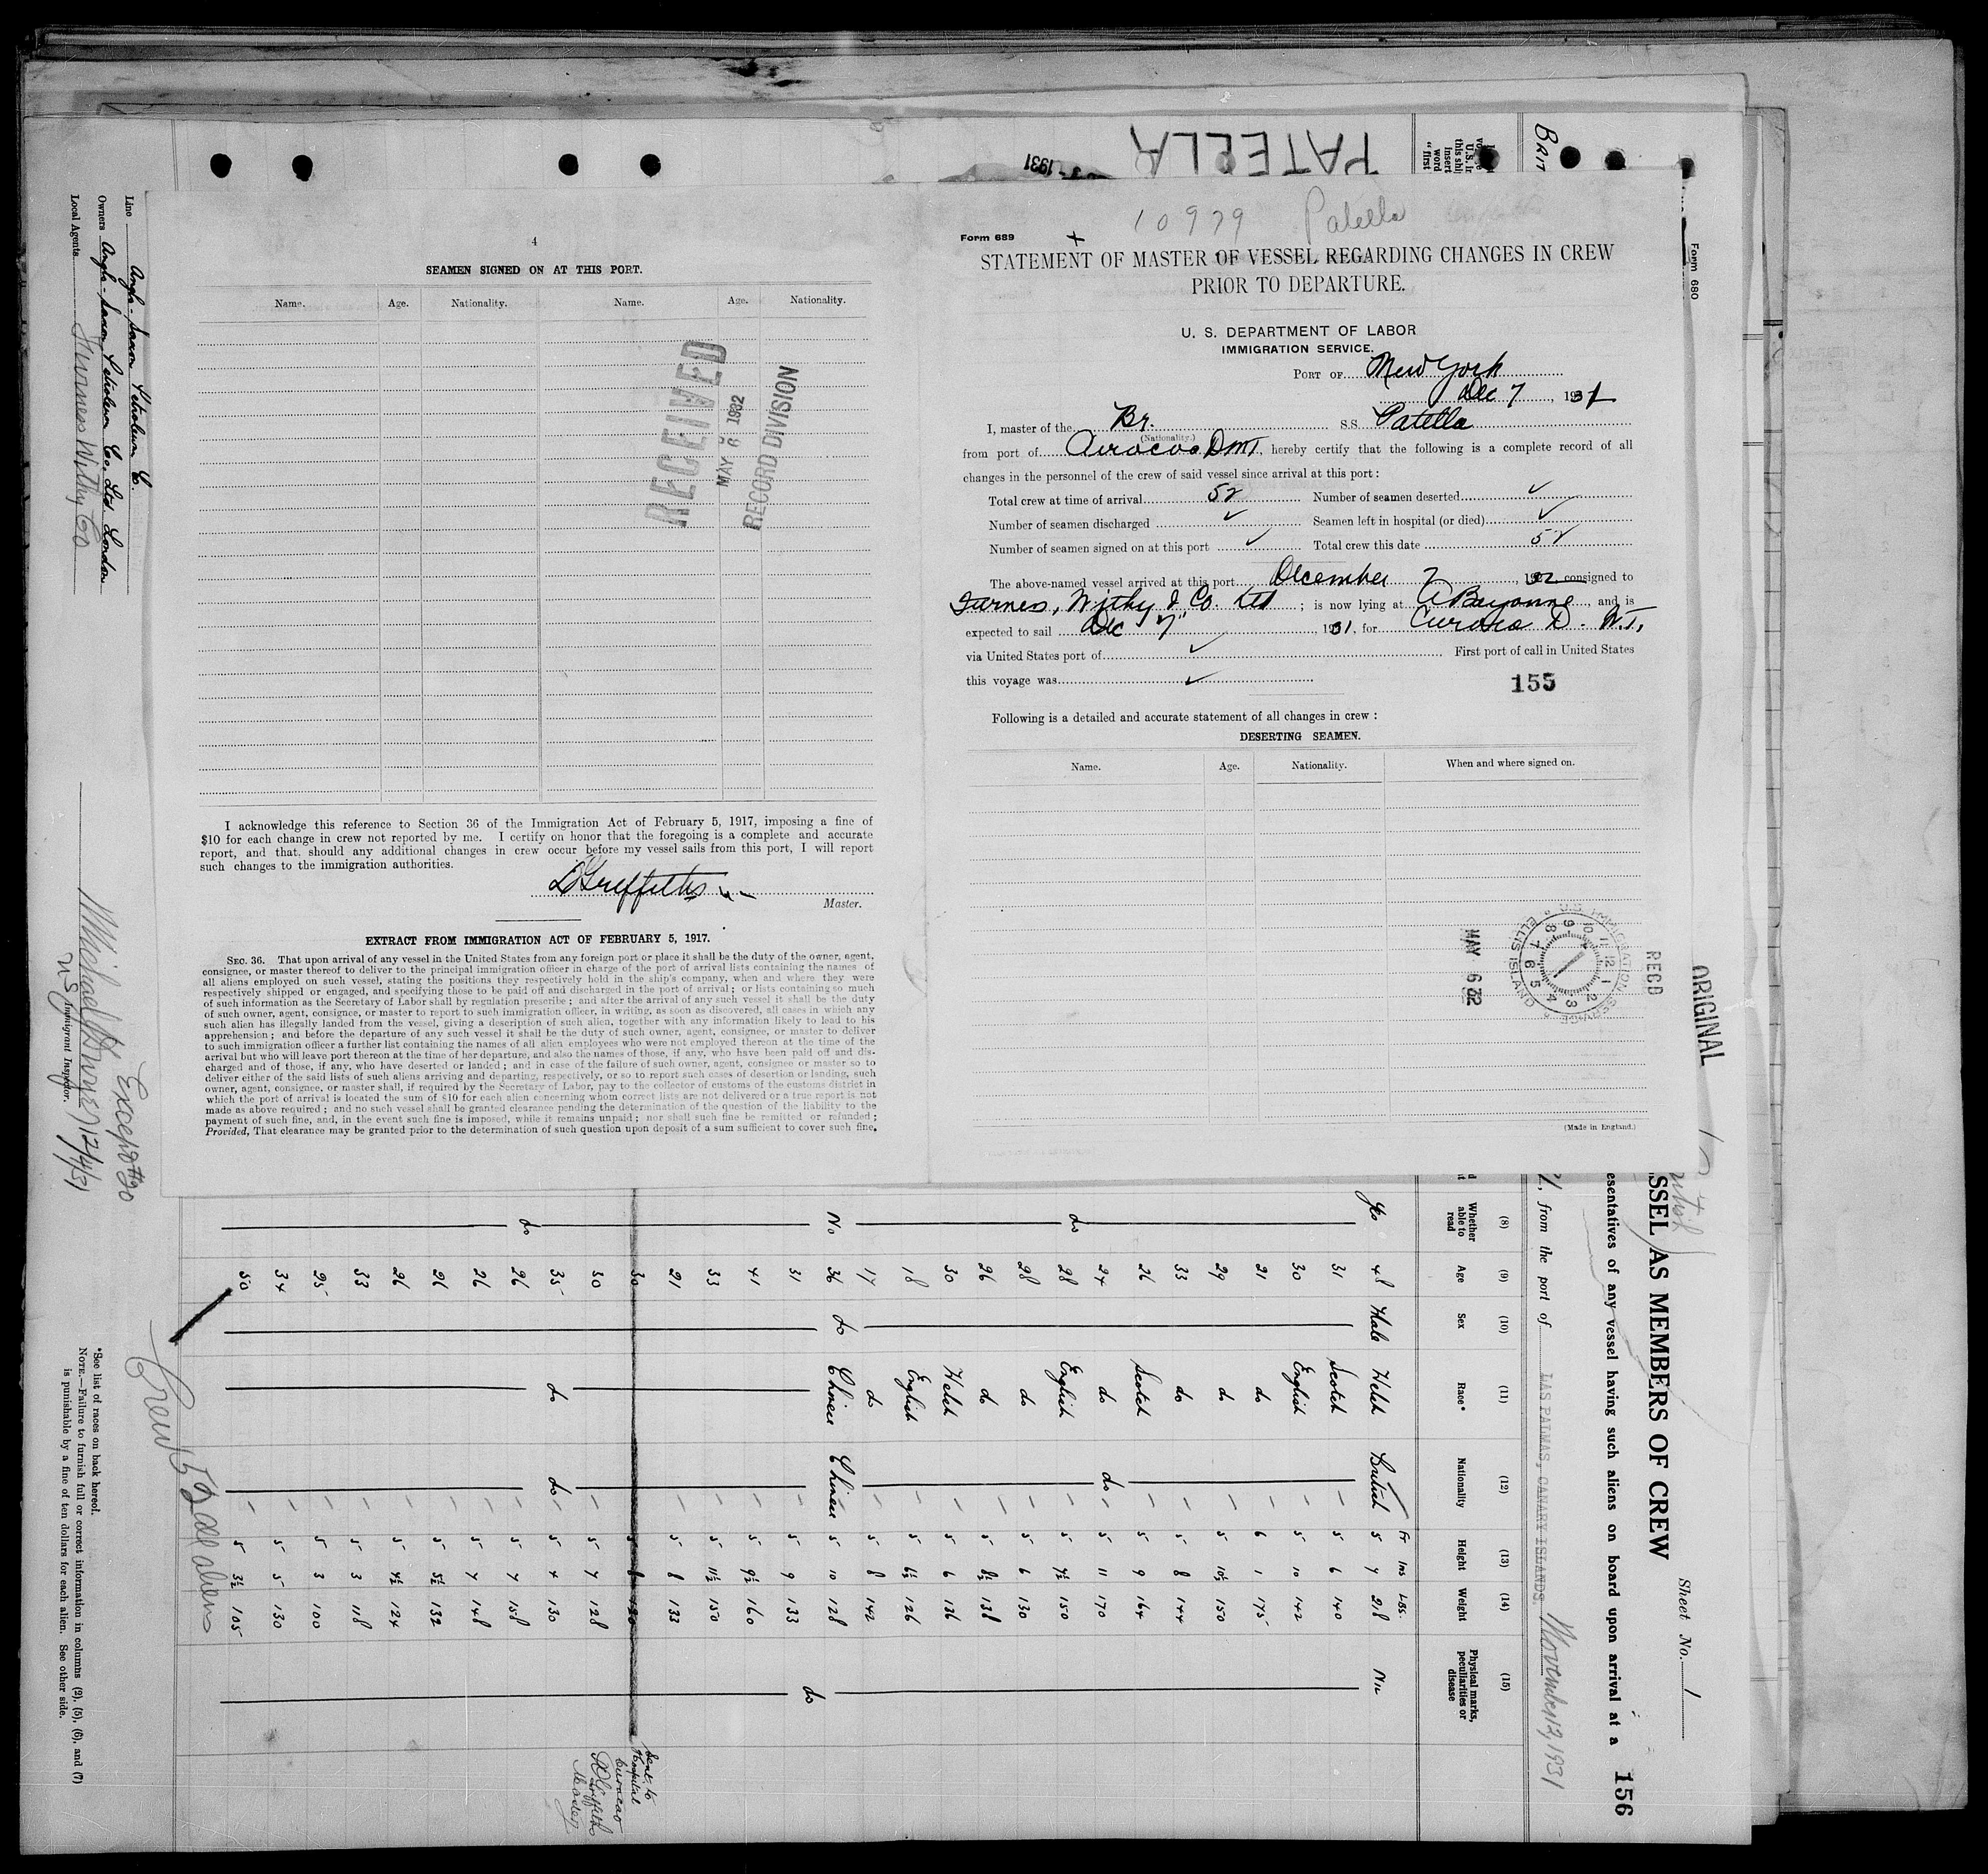 PATELLA
1931
BRIT
10979 Patella
4
SEAMEN SIGNED ON AT THIS PORT.
Name. Age. Nationality. Name. Age. Nationality.
RECEIVED
MAY 6 1932
RECORD DIVISION
I acknowledge this reference to Section 36 of the Immigration Act of February 5, 1917, imposing a fine of
$10 for each change in crew not reported by me. I certify on honor that the foregoing is a complete and accurate
report, and that should any additional changes in crew occur before my vessel sails from this port, I will report
such changes to the immigration authorities.
DGriffiths
Master.
EXTRACT FROM IMMIGRATION ACT OF FEBRUARY 5, 1917.
SEC. 36. That upon arrival of any vessel in the United States from any foreign port or place it shall be the duty of the owner, agent,
consignee, or master thereof to deliver to the principal immigration officer in charge of the port of arrival lists containing the names of
all aliens employed on such vessel, stating the positions they respectively hold in the ship's company, when and where they were
respectively shipped or engaged, and specifying those to be paid off and discharged in the port of arrival; or lists containing so much
of such information as the Secretary of Labor shall by regulation prescribe; and after the arrival of any such vessel it shall be the duty
of such owner, agent, consignee, or master to report to such immigration officer, in writing, as soon as discovered, all cases in which any
such alien has illegally landed from the vessel, giving a description of such alien, together with any information likely to lead to his
apprehension; and before the departure of any such vessel it shall be the duty of such owner, agent, consignee, or master to deliver
to such immigration officer a further list containing the names of all alien employees who were not employed thereon at the time of the
arrival but who will leave port thereon at the time of her departure, and also the names of those, if any, who have been paid off and dis-
charged and of those, if any, who have deserted or landed; and in case of the failure of such owner, agent, consignee or master so to
deliver either of the said lists of such aliens arriving and departing, respectively, or so to report such cases of desertion or landing, such
owner, agent, consignee, or master shall, if required by the Secretary of Labor, pay to the collector of customs of the customs district in
which the port of arrival is located the sum of $10 for each alien concerning whom correct lists are not delivered or a true report is not
made as above required; and no such vessel shall be granted clearance pending the determination of the question of the liability to the
payment of such fine, and, in the event such fine is imposed, while it remains unpaid; nor shall such fine be remitted or refunded;
Provided, That clearance may be granted prior to the determination of such question upon deposit of a sum sufficient to cover such fine.
Form 689
STATEMENT OF MASTER OF VESSEL REGARDING CHANGES IN CREW
PRIOR TO DEPARTURE.
U. S. DEPARTMENT OF LABOR
IMMIGRATION SERVICE.
PORT OF New York
Dec 7, 1931
I, master of the Br. S.S. Patella
(Nationality.)
from port of, hereby certify that the following is a complete record of all
changes in the personnel of the crew of said vessel since arrival at this port:
Total crew at time of arrival 52 Number of seamen deserted ✓
Number of seamen discharged ✓ Seamen left in hospital (or died) ✓
Number of seamen signed on at this port ✓ Total crew this date 52
The above-named vessel arrived at this port December 7, consigned to
Furness, Withy & Co. Ltd; is now lying at Bayonne, and is
expected to sail Dec 7", 1931, for Curacao D. W.I.
via United States port of ✓ First port of call in United States
this voyage was ✓
155
Following is a detailed and accurate statement of all changes in crew:
DESERTING SEAMEN.
Name. Age. Nationality. When and where signed on.
MAY 6 32
U.S. IMMIGRATION SERVICE
ELLIS ISLAND
REC'D
(Made in England.)
Form 680
ORIGINAL
Line Anglo-Saxon Petroleum Co.
Owners Anglo-Saxon Petroleum Co. Ltd London
Local Agents Furness Withy Co
Except #20
12/4/31
US Immigrant Inspector.
Sheet No. 1
SSEL AS MEMBERS OF CREW
156
esentatives of any vessel having such aliens on board upon arrival at a
, from the port of LAS PALMAS, CANARY ISLANDS. November 12, 1931
(8) (9) (10) (11) (12) (13) (14) (15)
Whether able to read Age Sex Race* Nationality Height Weight Physical marks, peculiarities or disease
Ft Ins Lbs.
Yes 48 Male Welsh British 5 7 218 Nil
31 Scotch 5 6 140
30 English 5 10 142
21 do 6 1 175
29 do 5 10½ 150
33 do 5 8 144
26 Scotch 5 9 164
24 do do 5 11 170
do 28 English 5 7½ 150
28 do 5 6 130
26 do 5 8½ 138
30 Welsh 5 6 136
18 English 5 6½ 126
17 do 5 8 142
No 36 do Chinese Chinese 5 10 128 do
31 5 9 133
41 5 9½ 160
33 5 11½ 150
21 5 8 133
30
30 5 7 128
35 do do 5 4 130
do 26 5 7 158
26 5 7 148
26 5 5½ 132
26 5 4½ 124
33 5 3 118
25 5 3 100
34 5 5 130
50 5 3½ 105
Sent to
Hospital
Curacao
DGriffiths
Master
Crew 52 all aliens
*See list of races on back hereof.
NOTE.—Failure to furnish full or correct information in columns (2), (5), (6), and (7)
is punishable by a fine of ten dollars for each alien. See other side.